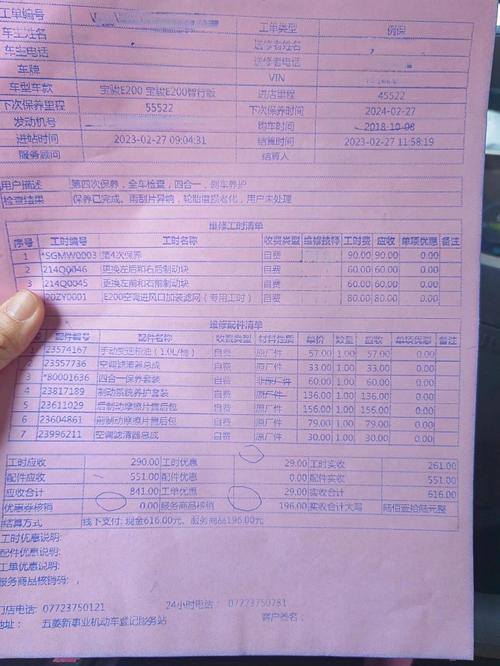 工单编号 工单类型 例保
车主姓名 送修者姓名
车主电话 送修者电话
车牌 VIN
车型车款 宝骏E200 宝骏E200智行版 进店里程 45522
下次保养里程 55522 下次保养时间 2024-02-27
发动机号 购车时间 2018-10-08
进站时间 2023-02-27 09:04:31 结算时间 2023-02-27 11:58:19
服务顾问 结算人
用户描述 第四次保养，全车检查，四合一，刹车养护
检查结果 保养已完成。雨刮片异响，轮胎磨损老化，用户未处理
维修工时清单
序号 工时编号 工时名称 收费类型 维修技师 工时费 应收 单项优惠 备注
1 *SGMW0003 第4次保养 自费 90.00 90.00 0.00
2 214Q0046 更换左后和右后制动块 自费 60.00 60.00 0.00
3 214Q0045 更换左前和右前制动块 自费 60.00 60.00 0.00
20ZY0001 E200空调进风口加装滤网（专用工时） 自费 80.00 80.00 0.00
维修配件清单
配件编号 配件名称 收费类型 材料性质 单价 数量 应收 单项优惠 备注
23574167 手动变速箱油（1.0L/桶） 自费 原厂件 57.00 1.00 57.00 0.00
23557736 空调滤清器总成 自费 原厂件 33.00 1.00 33.00 0.00
3 *80001636 四合一保养套装 自费 非原厂件 60.00 1.00 60.00 0.00
4 23817189 制动系统养护套装 自费 原厂件 136.00 1.00 136.00 0.00
5 23611029 后制动摩擦片售后包 自费 原厂件 156.00 1.00 156.00 0.00
6 23604861 前制动摩擦片售后包 自费 原厂件 79.00 1.00 79.00 0.00
7 23996211 空调滤清器总成 自费 原厂件 30.00 1.00 30.00 0.00
工时应收 290.00 工时优惠 29.00 工时实收 261.00
配件应收 551.00 配件优惠 0.00 配件实收 551.00
应收合计 841.00 工单优惠 29.00 实收合计 616.00
优惠券核销 0.00 服务商品核销 196.00 实收合计大写 陆佰壹拾陆元整
结算方式 线下支付:现金616.00元，服务商品196.00元
工时优惠说明:
配件优惠说明:
工单优惠说明:
服务商品核销码: ,
门店电话: 07723750121 24小时电话: 07723750781
地址: 五菱新事业机动车登记服务站 客户签名: